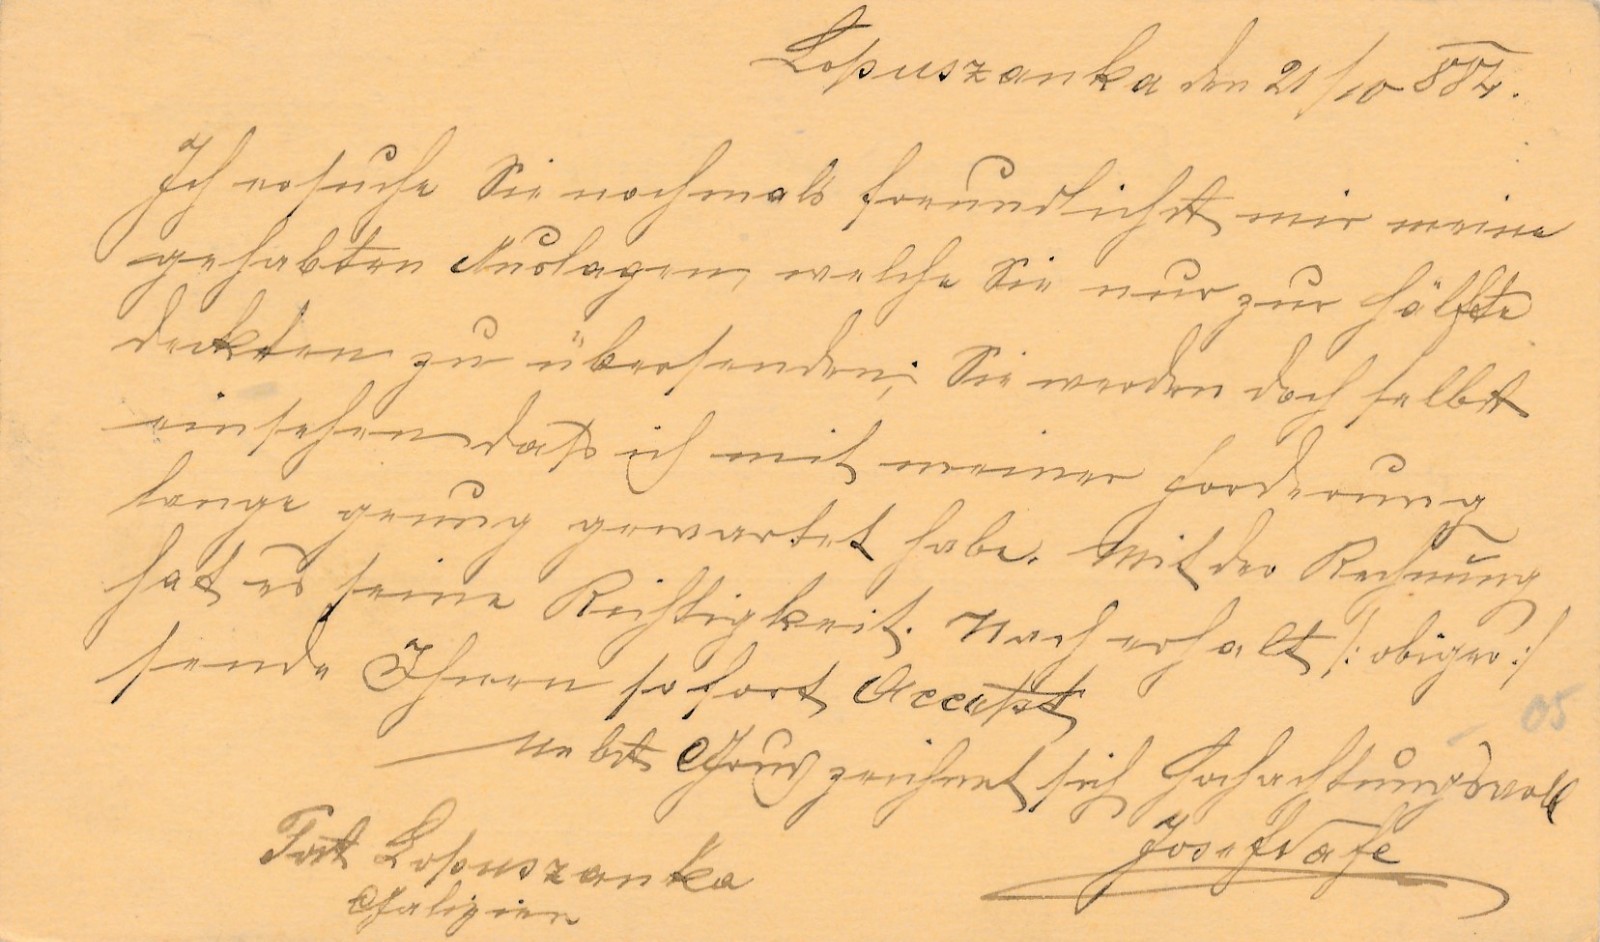 Lopuszanka den 21/10 884.
Ich ersuche Sie nochmals freundlichst mir meine
gehabten Auslagen, welche Sie nur zur Hälfte
deckten zu übersenden; Sie werden doch selbst
einsehen daß ich mit meiner Forderung
lange genug gewartet habe. Mit der Rechnung
hat es seine Richtigkeit. Nach erhalt /: obiger :/
sende Ihnen sofort Accept
Nebst Gruß zeichnet sich Hochachtungsvoll
Josef
Post Lopuszanka
Galizien
05